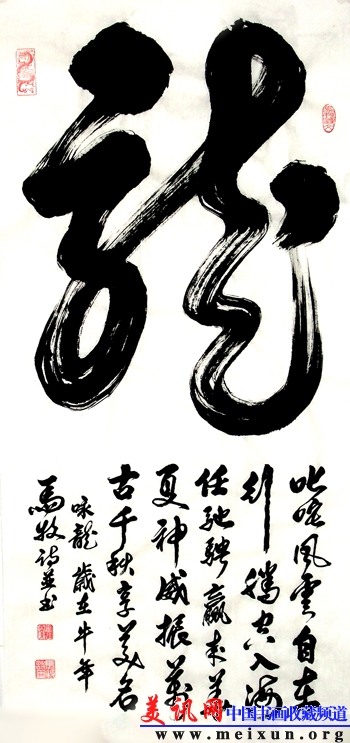 龍
叱咤風雲自在
行騰空入海
任馳騁贏來華
夏神威振萬
古千秋享美名
咏龍 歲在牛年
馬牧詩並書
美讯网 中国书画收藏频道
www.meixun.org